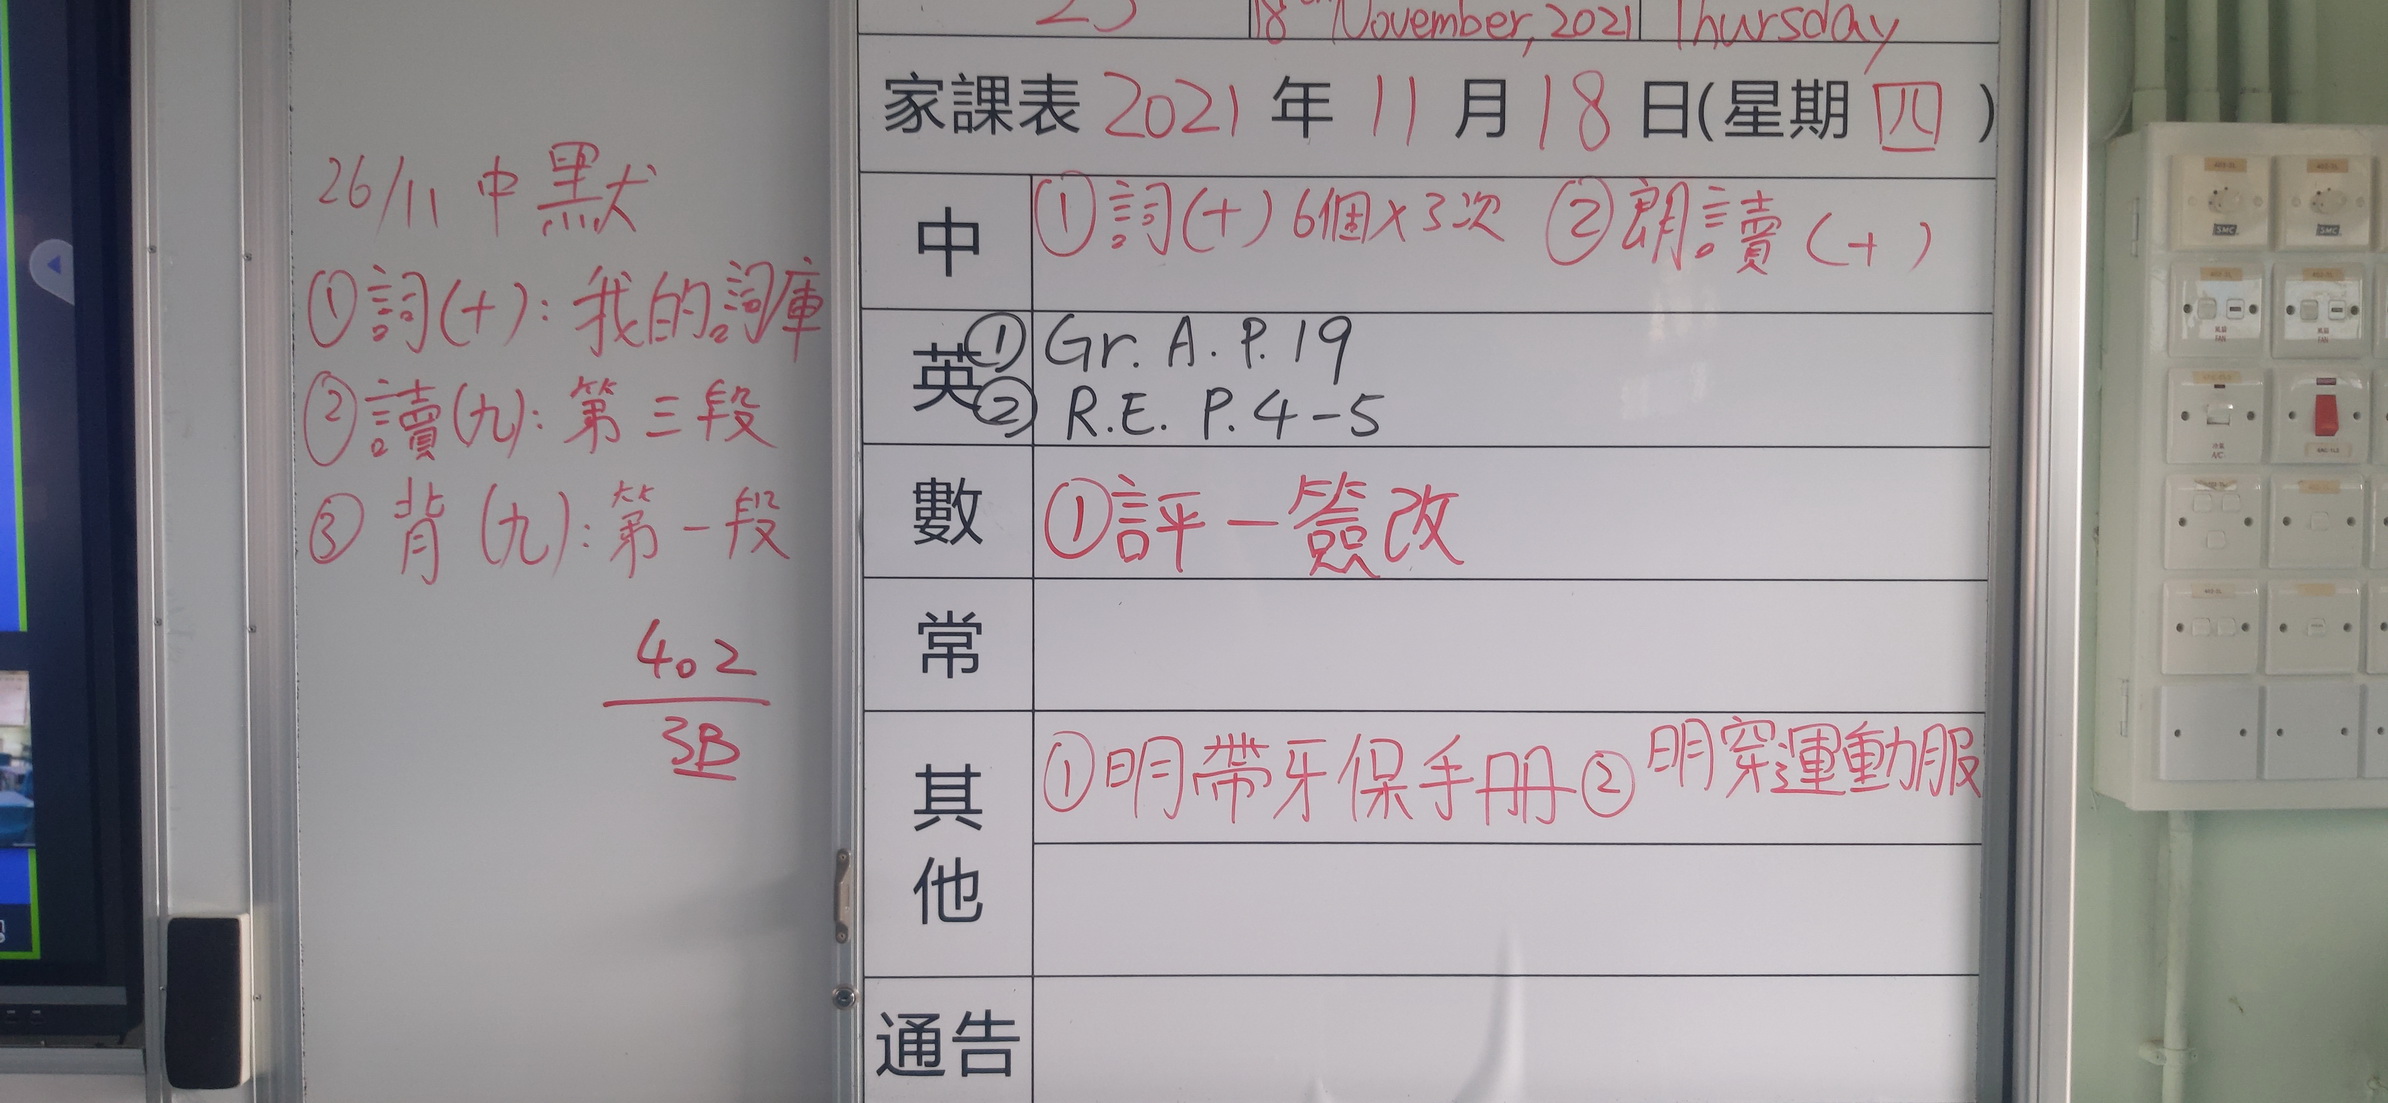 26/11 中默
①詞(十):我的詞庫
②讀(九):第三段
③背(九):第一段
402
3B
18th November, 2021 Thursday
家課表 2021 年 11 月 18 日(星期 四 )
中 ①詞(十)6個×3次 ②朗讀(十)
英 ① Gr. A. P. 19
② R.E. P. 4-5
數 ①評一簽改
常
其他 ①明帶牙保手冊 ②明穿運動服
通告
SMC
SMC
FAN
FAN
A/C